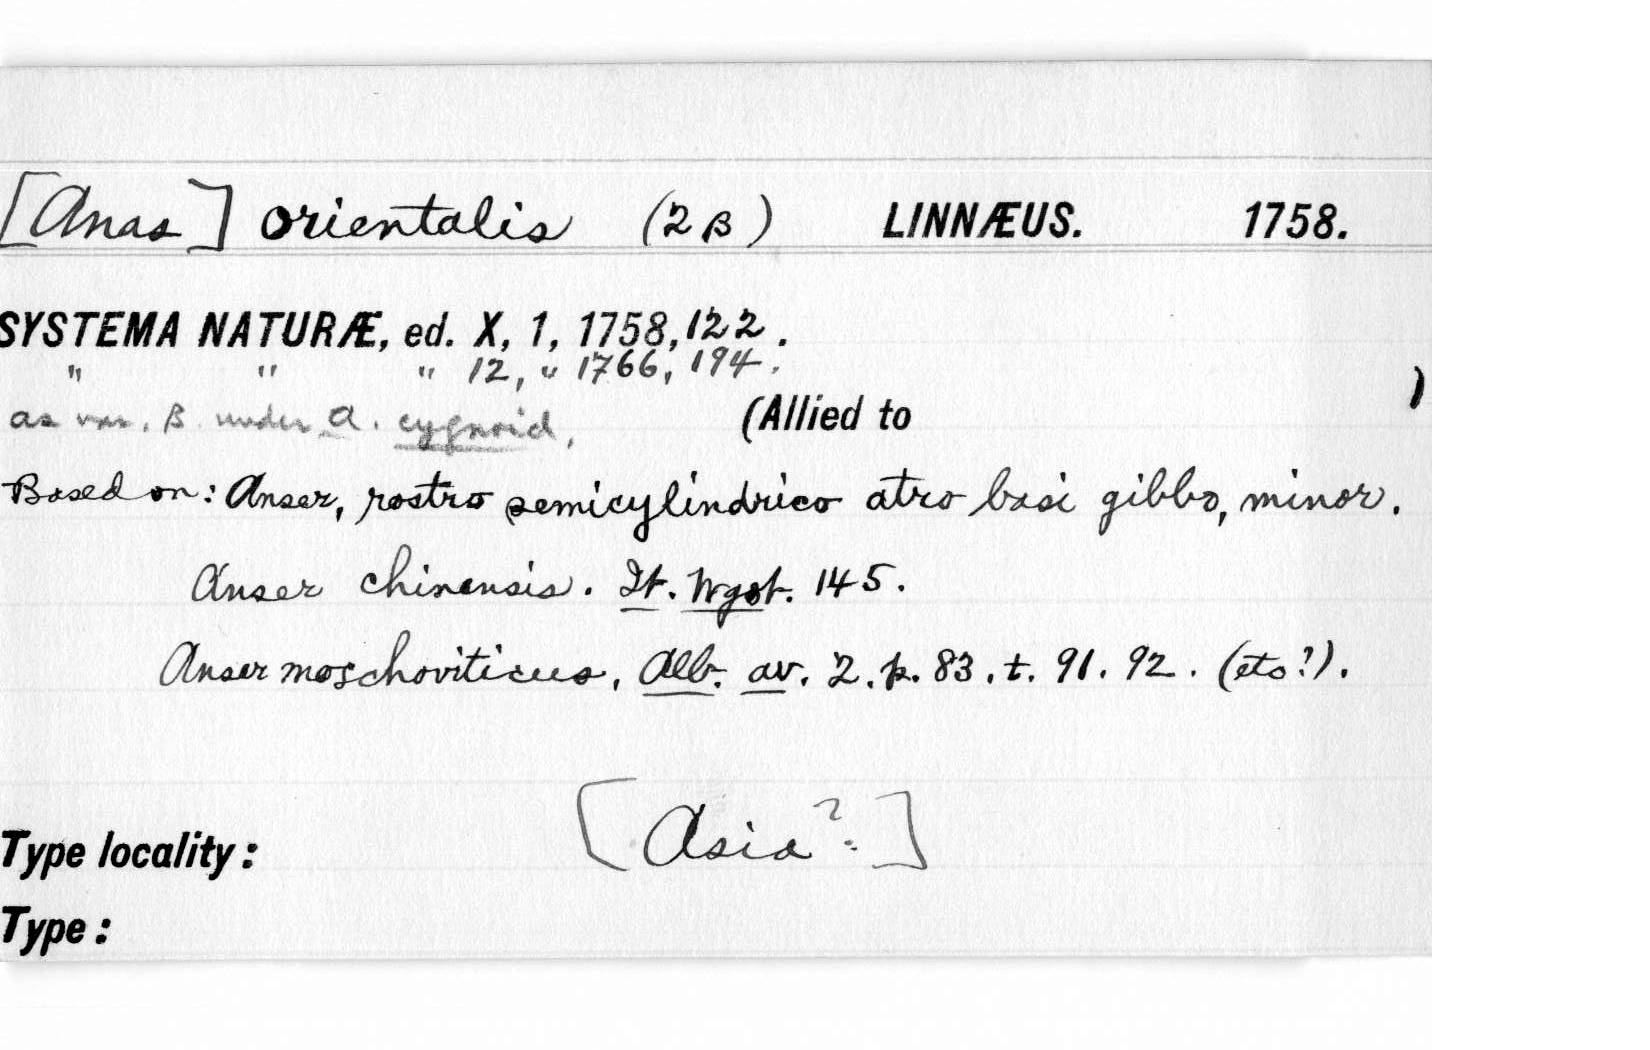 [Anas] orientalis (2 β) LINNÆUS. 1758.
SYSTEMA NATURÆ, ed. X, 1, 1758, 122.
" " " 12, " 1766, 194.
as var. β. under A. cygnoid, (Allied to )
Based on: Anser, rostro semicylindrico atro basi gibbo, minor.
Anser chinensis. It. Wgot. 145.
Anser moschoviticus, Alb. av. 2. p. 83. t. 91. 92. (etc?).
[Asia?]
Type locality:
Type: